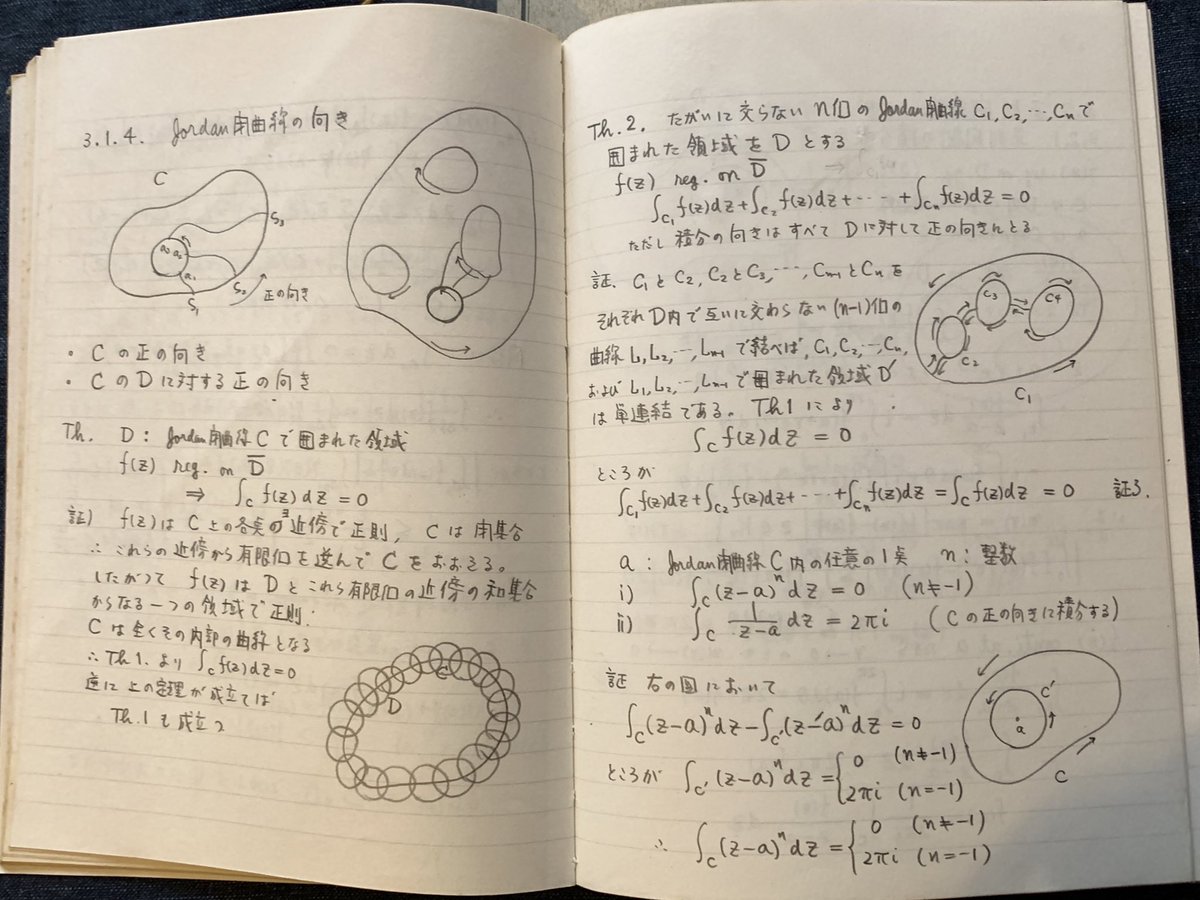 3.1.4. Jordan閉曲線の向き
C
S3
a3
a2
a1
S1
S2
正の向き
・ Cの正の向き
・ CのDに対する正の向き
Th. D: Jordan閉曲線Cで囲まれた領域
f(z) reg. on D̅
⇒ ∫_C f(z)dz = 0
証) f(z)はC上の各点の∃近傍で正則, Cは閉集合
∴ これらの近傍から有限個を選んでCをおおえる。
したがって f(z)はDとこれら有限個の近傍の和集合
からなる一つの領域で正則.
Cは全くその内部の曲線となる
∴ Th1. より ∫_C f(z)dz=0
逆に上の定理が成立てば
Th.1も成立つ
C
D
Th.2. たがいに交らないn個のJordan閉曲線 C1, C2, …, Cnで
囲まれた領域をDとする
f(z) reg. on D̅
∫_C1 f(z)dz+∫_C2 f(z)dz+…+∫_Cn f(z)dz=0
ただし積分の向きはすべてDに対して正の向きにとる
証. C1とC2, C2とC3, …, Cn-1とCnを
それぞれD内で互いに交わらない(n-1)個の
曲線L1, L2, …, Ln-1で結べば, C1, C2, …, Cn,
およびL1, L2, …, Ln-1で囲まれた領域D'
は単連結である。 Th1により
∫_C f(z)dz = 0
ところが
∫_C1 f(z)dz+∫_C2 f(z)dz+…+∫_Cn f(z)dz=∫_C f(z)dz=0 証了.
C3
C4
C2
C1
a : Jordan閉曲線C内の任意の1点 n : 整数
i) ∫_C (z-a)^n dz = 0 (n≠-1)
ii) ∫_C 1/(z-a) dz = 2πi (Cの正の向きに積分する)
証 右の図において
∫_C (z-a)^n dz-∫_C' (z-a)^n dz = 0
ところが ∫_C' (z-a)^n dz={ 0 (n≠-1)
2πi (n=-1)
∴ ∫_C (z-a)^n dz={ 0 (n≠-1)
2πi (n=-1)
C'
a
C